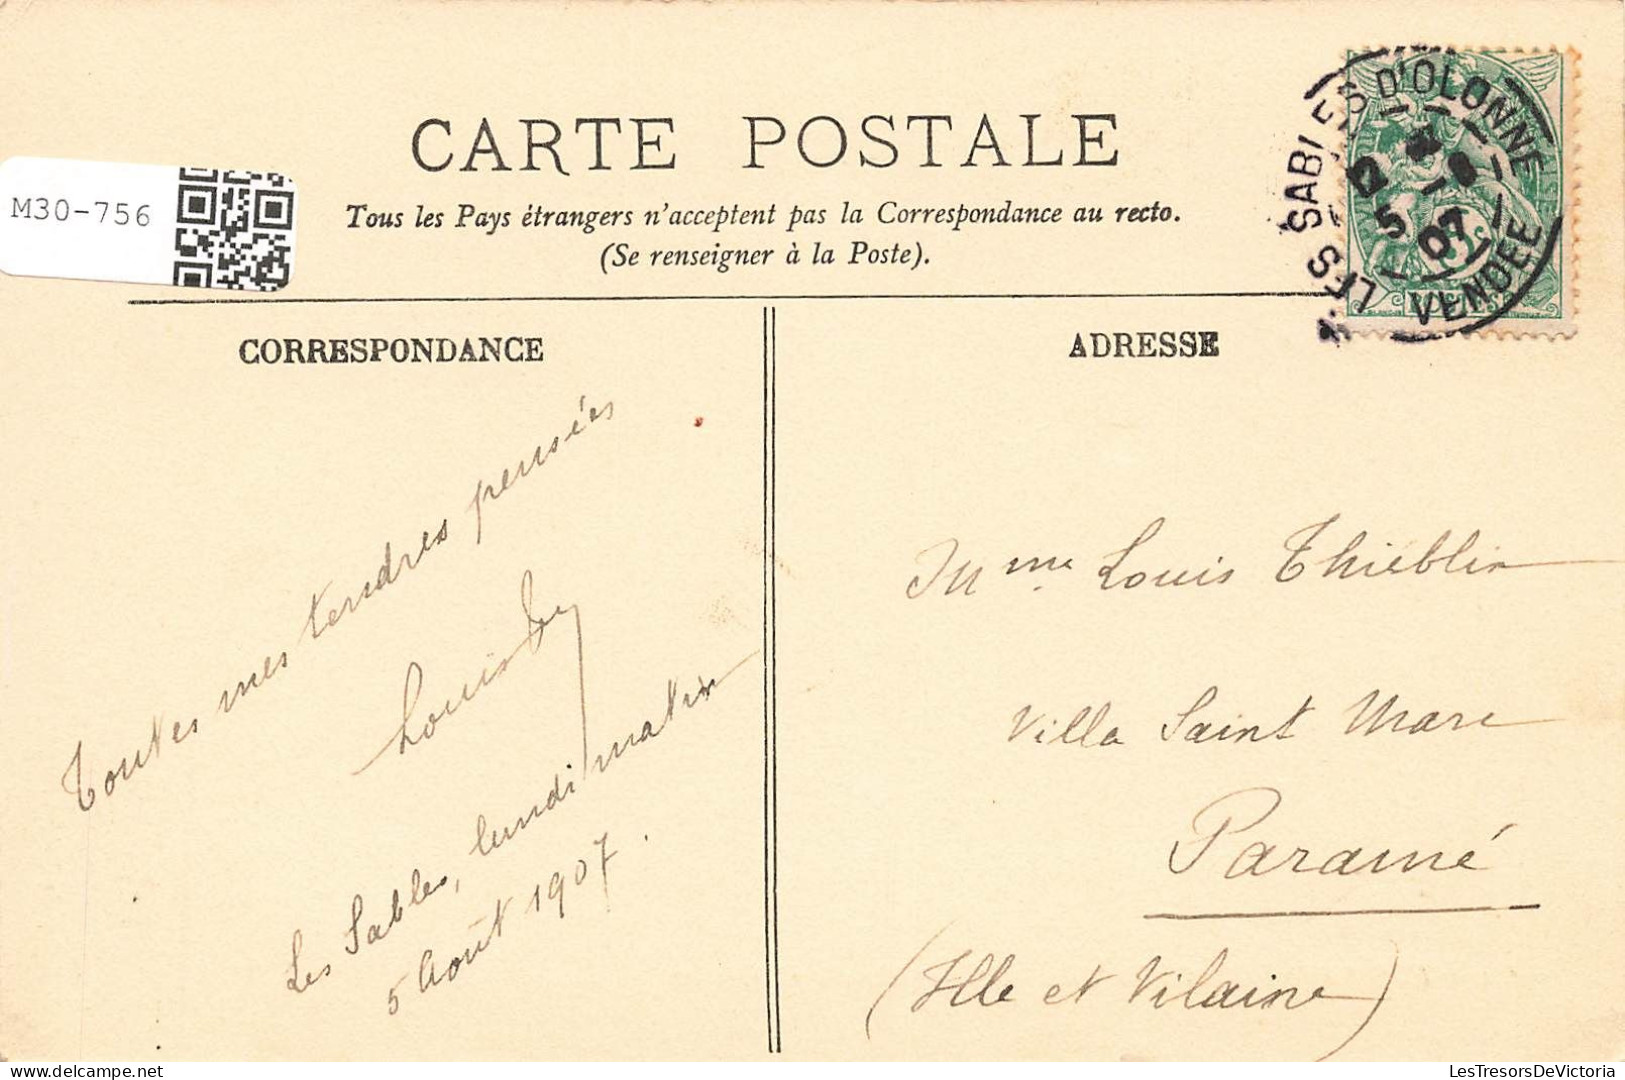 M30-756
CARTE POSTALE
Tous les Pays étrangers n'acceptent pas la Correspondance au recto.
(Se renseigner à la Poste).
LES SABLES D'OLONNE
5 - 8
07
VENDEE
CORRESPONDANCE
Toutes mes tendres pensées
Les Sables, lundi matin
5 Août 1907.
ADRESSE
Mme Louis Thiéblin
Villa Saint Marc
Paramé
(Ille et Vilaine)
LesTresorsDeVictoria